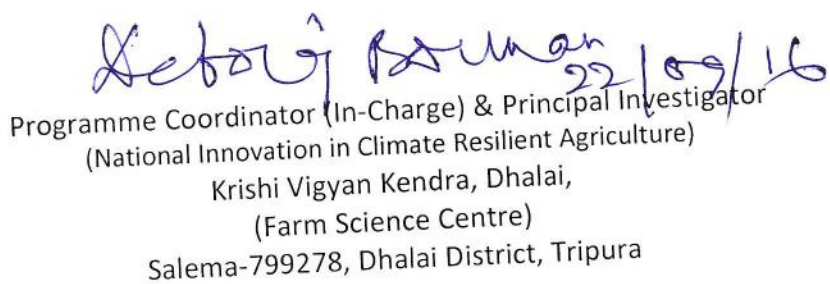 Debojit Barman
22/09/16
Programme Coordinator (In-Charge) & Principal Investigator
(National Innovation in Climate Resilient Agriculture)
Krishi Vigyan Kendra, Dhalai,
(Farm Science Centre)
Salema-799278, Dhalai District, Tripura